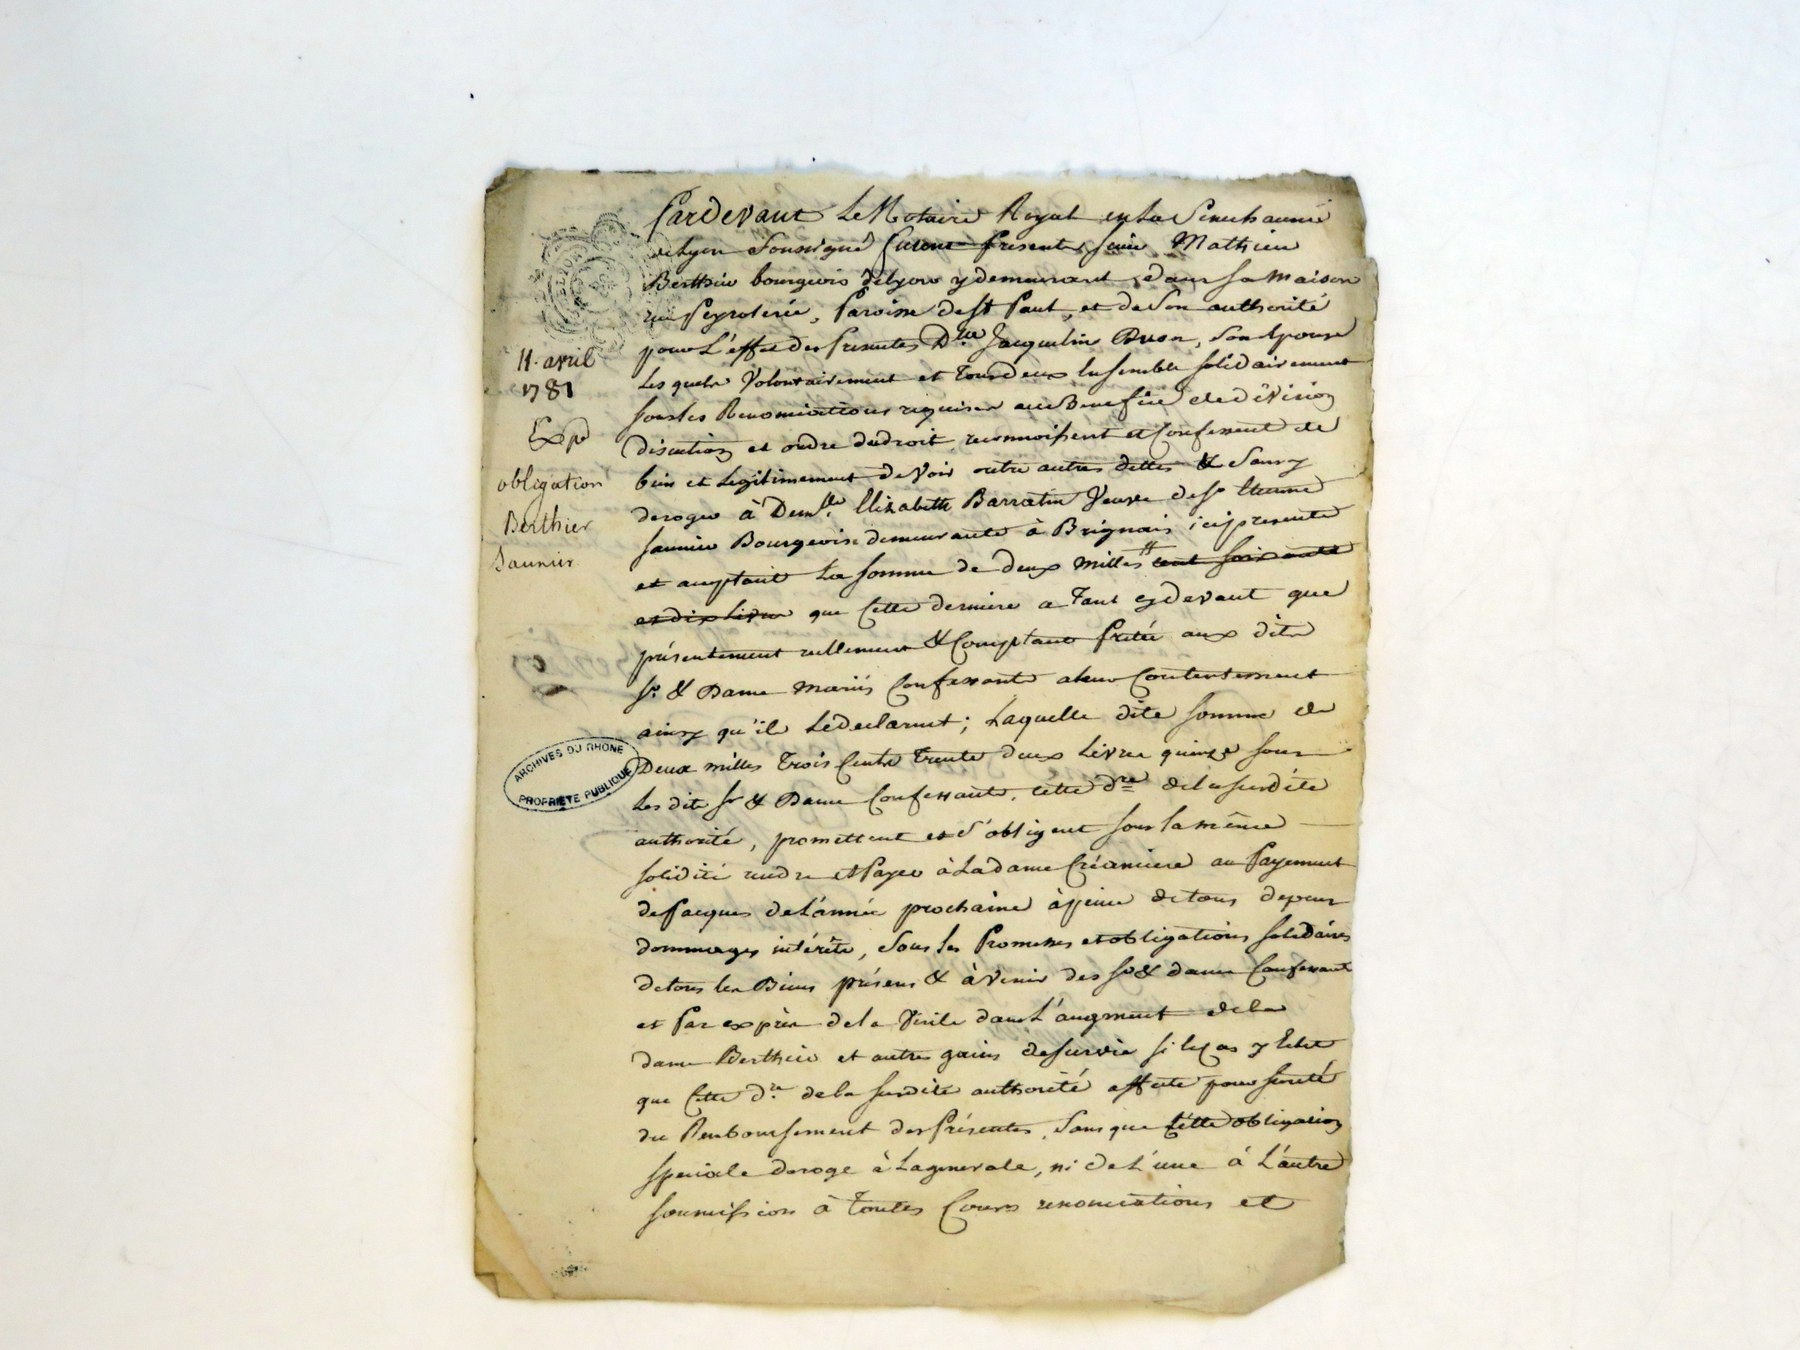 11. avril
1781
Expé
obligation
Berthier
Saunier
ARCHIVES DU RHONE
PROPRIÉTÉ PUBLIQUE
Pardevant Le Notaire Royal en la Senechaussée
de Lyon Soussigné furent presents sieur Mathieu
Berthier bourgeois de Lyon y demeurant dans sa maison
rue Peyrolerie, Paroisse de St Paul, et de Son authorité
pour L'effet des presentes Dlle Jacqueline Buson, Son Epouse
Lesquels Volontairement et Tous deux Ensemble solidairement
sous les Renonciations requises au Benefice de division
discution et ordre de droit reconnoissent et Confessent de
bien et Legitimement devoir outre autres dettes & Sans y
deroger à Demlle Elizabeth Barratin Veuve de Sr Etienne
Saunier Bourgeoise demeurante à Brignais icy presente
et acceptant La somme de deux milles cent soixante
et dix Livres que Cette derniere a Tant cy devant que
présentement reellement & Comptant Prêtée aux dits
Sr & Dame mariés Confessants a leur Contentement
ainsy qu'ils Le declarent; Laquelle dite somme de
Deux milles Trois Cents Trente deux Livres quinze sous
Les dits Sr & Dame Confessants, cette dre de la susdite
authorité, promettent et s'obligent sous la même
solidité rendre et Payer à La dame Créanciere au Payement
de Pacques de L'année prochaine à peine de tous depens
dommages intérêts, Sous les Promesses et obligations solidaires
de tous les Biens présens & à Venir des Sr & dame Confessants
et Par exprès de la Virile dans L'augment de la
dame Berthier et autres gains de survie si le Cas y Echet
que Cette dre de la susdite authorité affecte pour sureté
du Remboursement des Présentes, Sans que Cette obligation
speciale deroge à La generale, ni de L'une à L'autre
soumission à Toutes Cours renonciations et